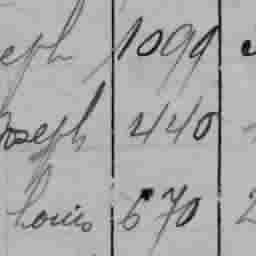 eph 1099
Joseph 440
Louis 670 2